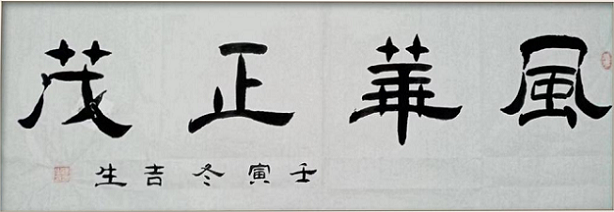 風華正茂
壬寅冬吉生